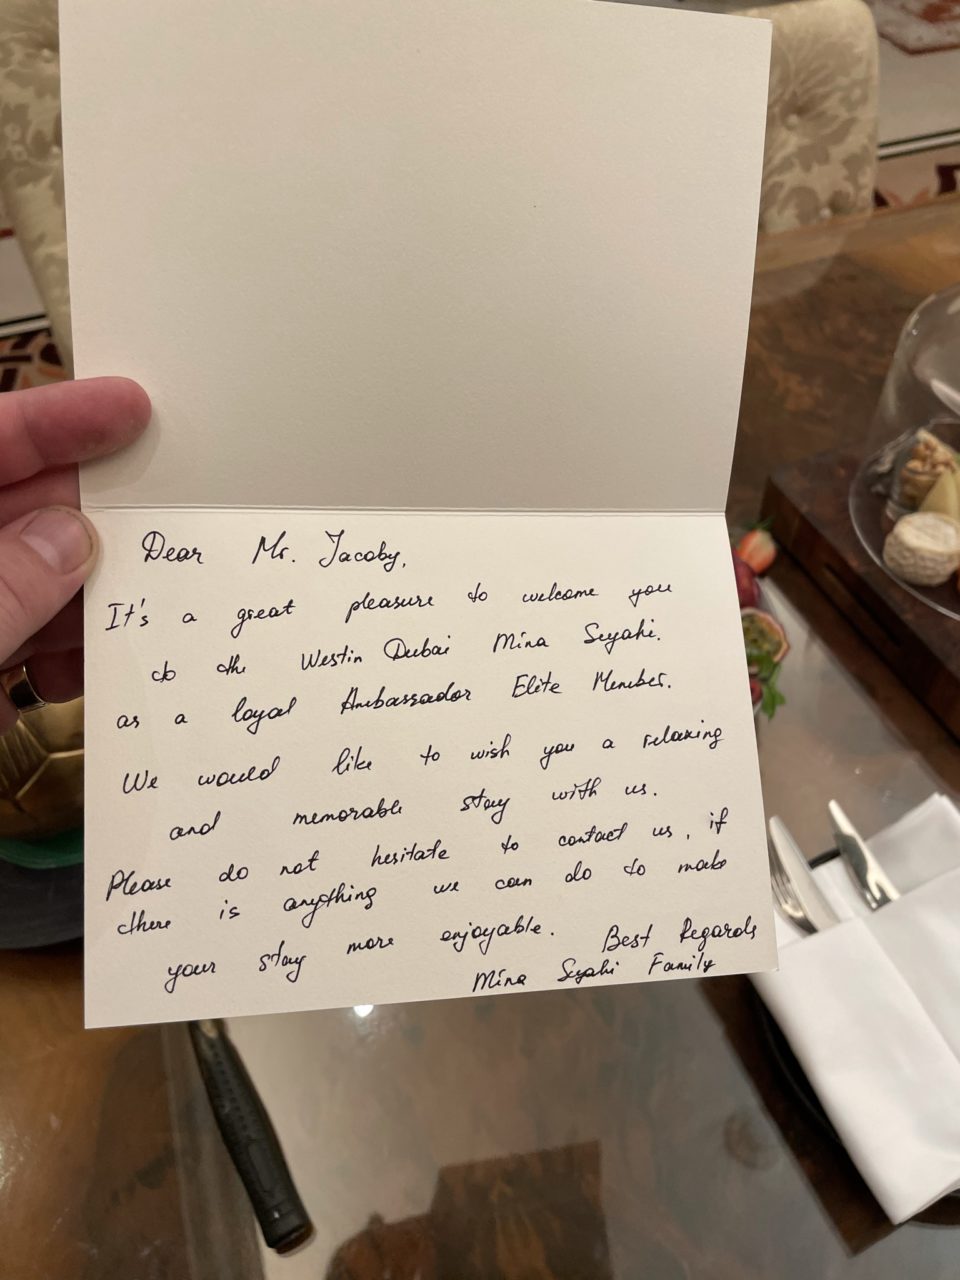 Dear Mr. Jacoby,
It's a great pleasure to welcome you
to the Westin Dubai Mina Seyahi.
as a loyal Ambassador Elite Member.
We would like to wish you a relaxing
and memorable stay with us.
Please do not hesitate to contact us, if
there is anything we can do to make
your stay more enjoyable.
Best Regards
Mina Seyahi Family